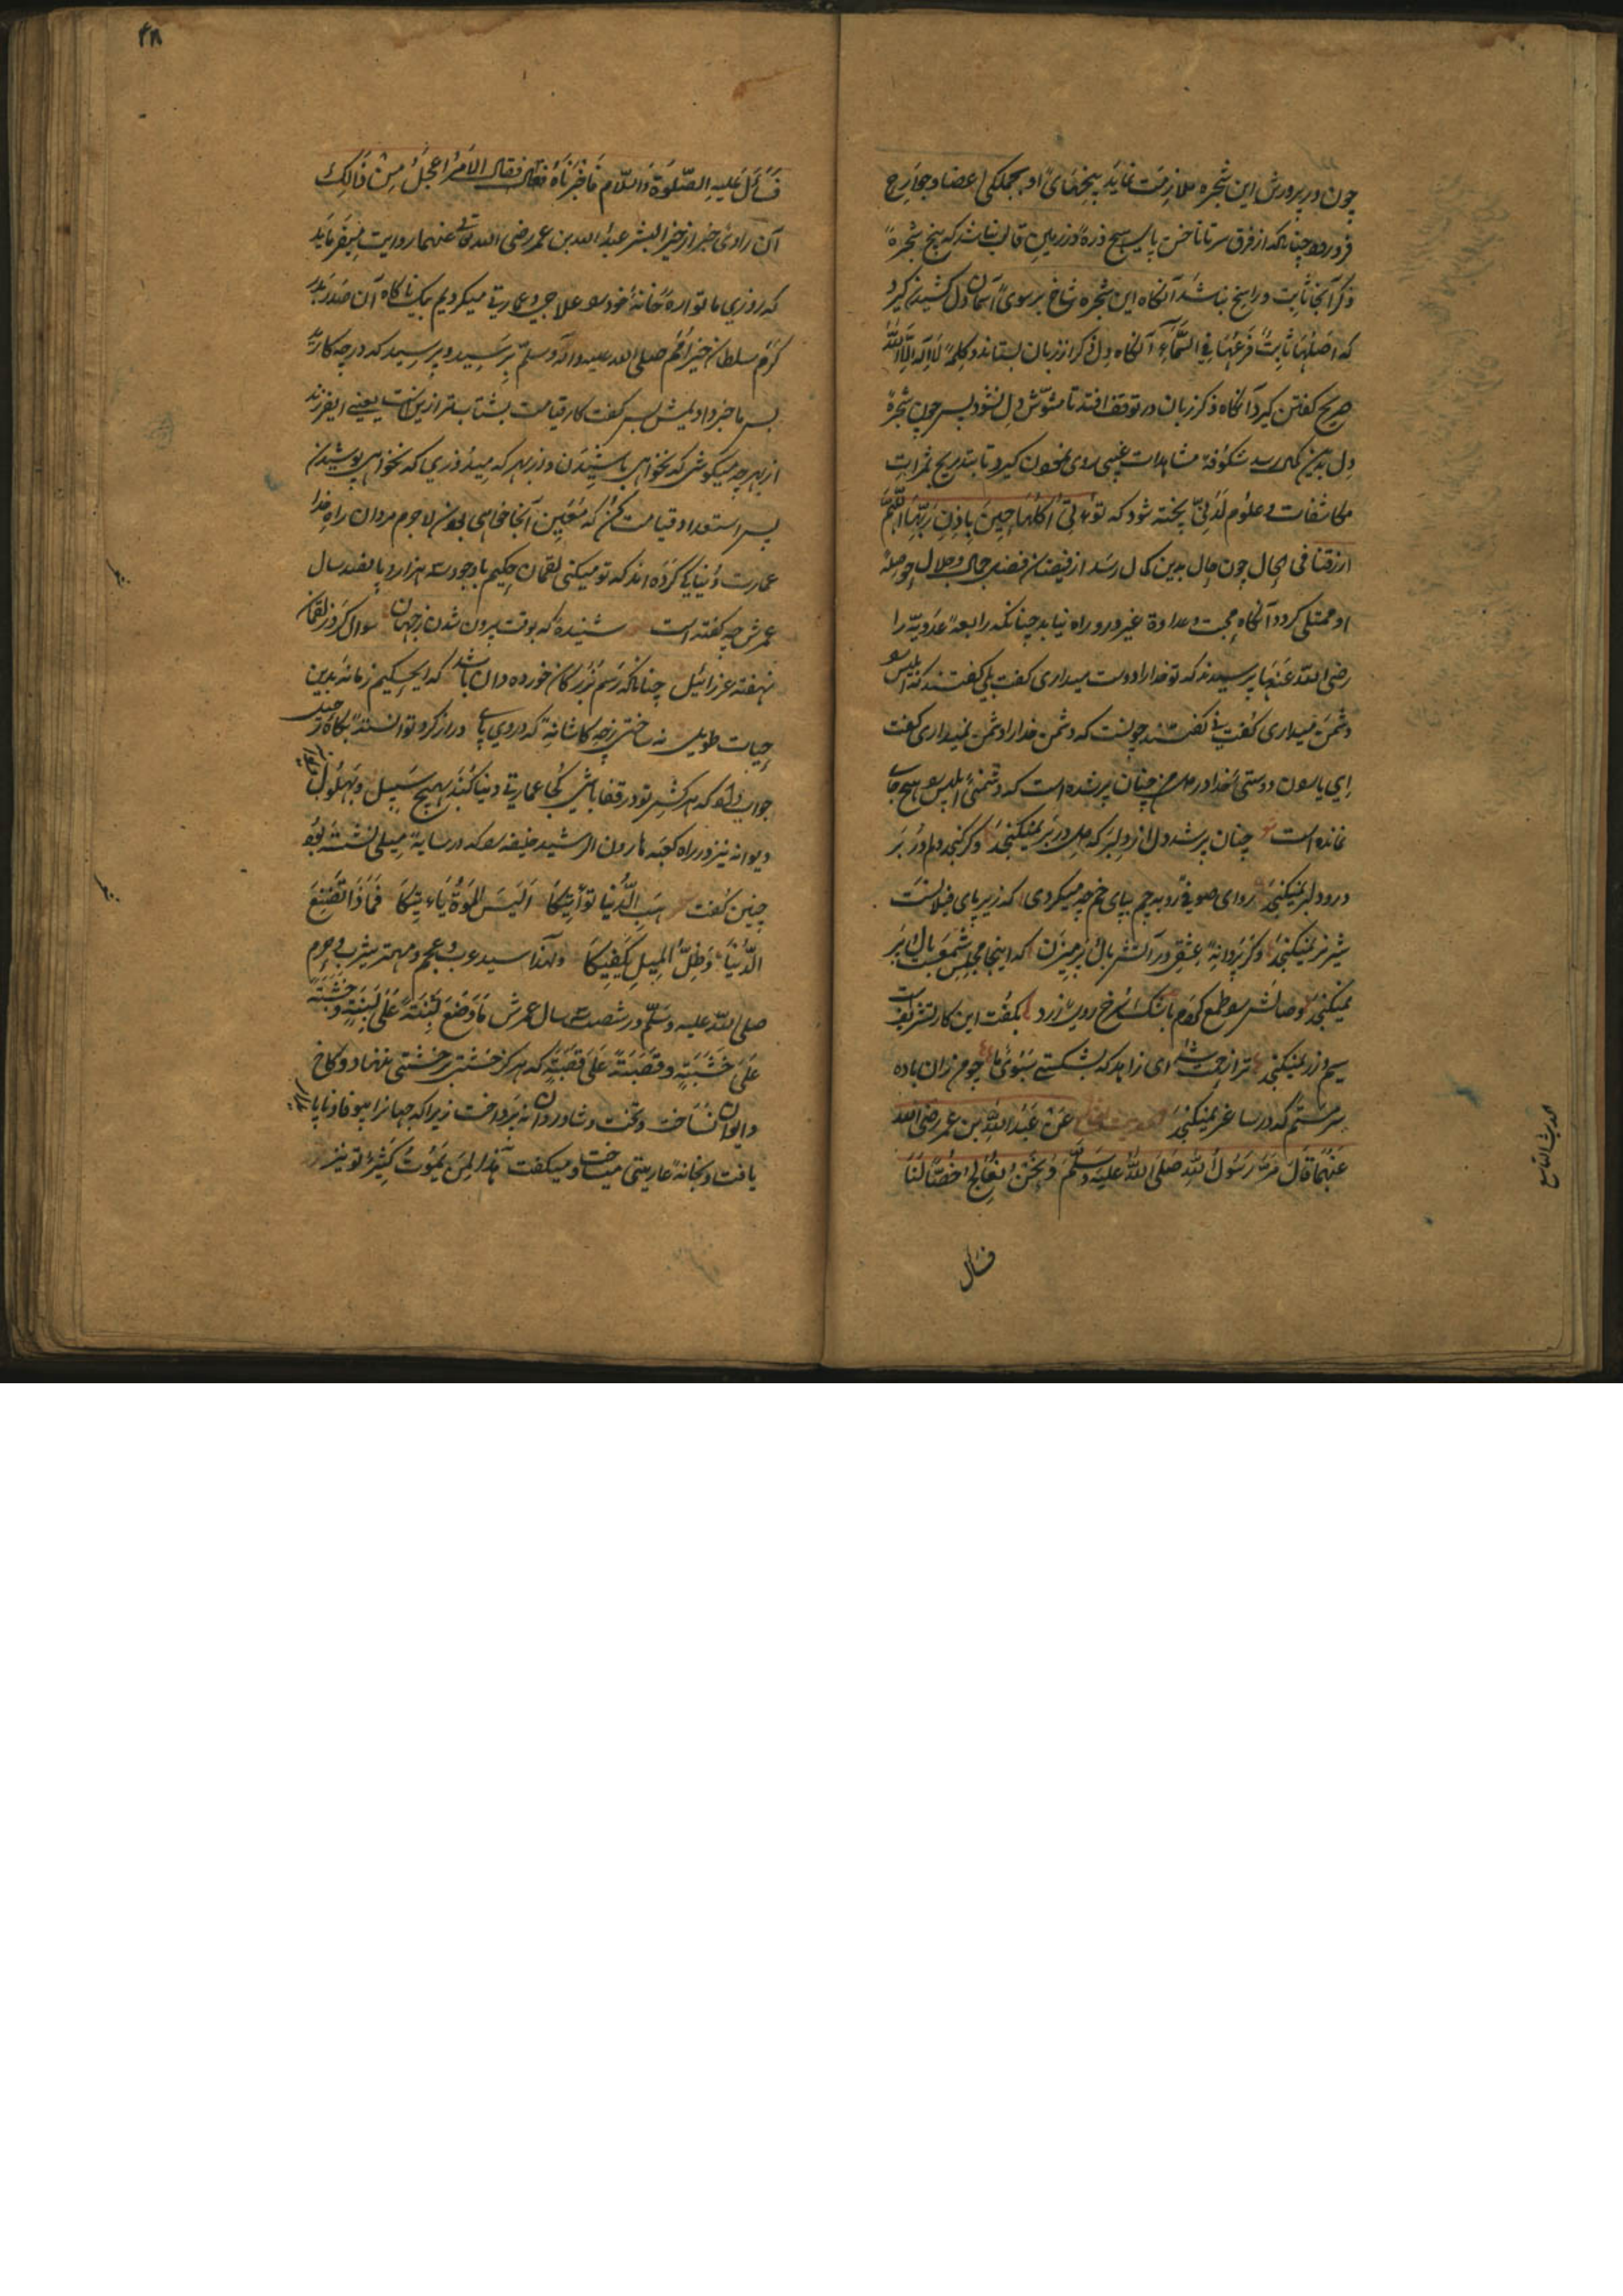 چون در پرورش این شجره ملازمت نماید بیخهای او بجملکی اعضا و جوارح
فرو رود چنانکه از فرق سر تا ناخن پای هیچ ذره در زمین قالب نباشد که بیخ شجره
ذکر آنجا ثابت و راسخ نباشد آنکاه این شجره شاخ بر سوی آسمان دل کشیدن کیرد
که اصلها ثابت و فرعها فی السماء آنکاه دل ذکر از زبان بستاند و کلمه لا اله الا الله
صریح کفتن کیرد آنکاه ذکر زبان در توقف افتد تا مشوش دل نشود پس چون شجره
دل بدین کمال رسد شکوفه مشاهدات غیبی روی نمودن کیرد تا بتدریج ثمرات
مکاشفات و علوم لدنی پخته شود که تؤتی اکلها حین باذن ربها اللهم
ارزقنا فی الحال چون حال بدین کمال رسد از فیضان فضل جمال و جلال حوصله
او ممتلی کردد آنکاه محبت و عداوة غیر درو راه نیابد چنانکه رابعه عدویه را
رضی الله عنها پرسیدند که تو خدا را دوست میداری کفت بلی کفتند که ابلیس
دشمن میداری کفت نی کفتند چونست که دشمن خدا را دشمن نمیداری کفت
ای یاران دوستی خدا در دل من چنان پر شده است که دشمنی ابلیس را هیچ جای
نمانده است چنان پر شد دل از دلبر که دل در بر نمیکنجد وکر کنجد دلم در بر
درو دلبر نمیکنجد روای صوفی رو به چم بپای خم چه میکردی که زیر پای فیلانست
شیر نر نمیکنجد وکر پروانه عشقی در آتش بال و پر میزن که اینجا مجلس شمعست بال و پر
نمیکنجد وصالش را طمع کردم با شک سرخ روی زرد بکفت این کار تشریف است
سیم و زر نمیکنجد ترا زحمت شد ای زاهد که بشکستی سبوی ما چو من زان باده
سرمستم که در ساغر نمیکنجد عن عبد الله بن عمر رضی الله
عنهما قال مر رسول الله صلی الله علیه وسلم و نحن نعالج خصا لنا
فسأل
الحدیث التاسع
۴۸
فسأل علیه الصلوة والسلام فاخبرناه فقال الامر اعجل من ذالک
آن راوی خبر از خیر البشر عبد الله بن عمر رضی الله تعالی عنهما روایت میفرماید
که روزی ما نواره خانه خود را علاجی و عمارتی میکردیم بیک ناکاه آن صدر بدر
کرم سلطان خیر امم صلی الله علیه وآله وسلم برسید و پرسید که در چه کارید
پس ما خبر دادیمش پس کفت کار قیامت بشتاب تر ازین است یعنی ای فرزند
از بهر چه میکوشی که نخواهی باشیدن و از بهر که میدوزی جامه که نخواهی پوشیدن
پس استعداد قیامت کن که مقیم آنجا خواهی بودن لاجرم مردان راه خدا
عمارت دنیا کی کرده اند که تو میکنی لقمان حکیم با وجود سه هزار و پانصد سال
عمرش چه کفته است شنیدم که بوقت بیرون شدن زجهان سوال کرد ز لقمان
نهفته عزرائیل چنانکه رسم بزرکان خورده دان باشد که ای حکیم زمانه بدین
حیات طویل نه ساختی ز چه کاشانه که در وی پای دراز کرد توانستی بکاه رحیل
جواب داد که هر کش تو در قفا باشی کجا عمارت دنیا کند بهیچ سبیل و بهلول
دیوانه نیز در راه کعبه هارون الرشید خلیفه را که در سایه میلی نشسته بود
چنین کفت هب الدنیا تواتیکا الیس الموت یاتیکا فماذا تصنع
الدنیا وظل المیل یکفیکا ولهذا سید عرب و عجم و مهتر یثرب و حرم
صلی الله علیه وسلم در شصت سه سال عمرش ما وضع لبنة علی لبنة و خشبة
علی خشبة و قصبة علی قصبة که هرکز خشتی بر خشتی ننهاد و کاخ
و ایوان نساخت و تخت و شادروان نه پرداخت زیرا که جهانرا بیوفا و ناپا
یافت و بخانه عاریتی میساخت و میکفت هذا لمن یموت کثیر تو نیز